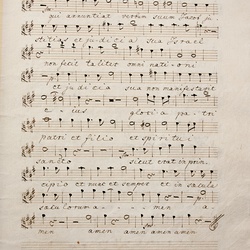 qui annuntiat verbum suum Jacob ju
stitias et judicia sua Israel
non fecit taliter omni nationi
et judicia sua non manifestavit
e is gloria patri
patri et filio et spiritui
sancto sicut erat in prin
cipio et nunc et semper et in saecula
saeculorum a men a
men amen amen amen